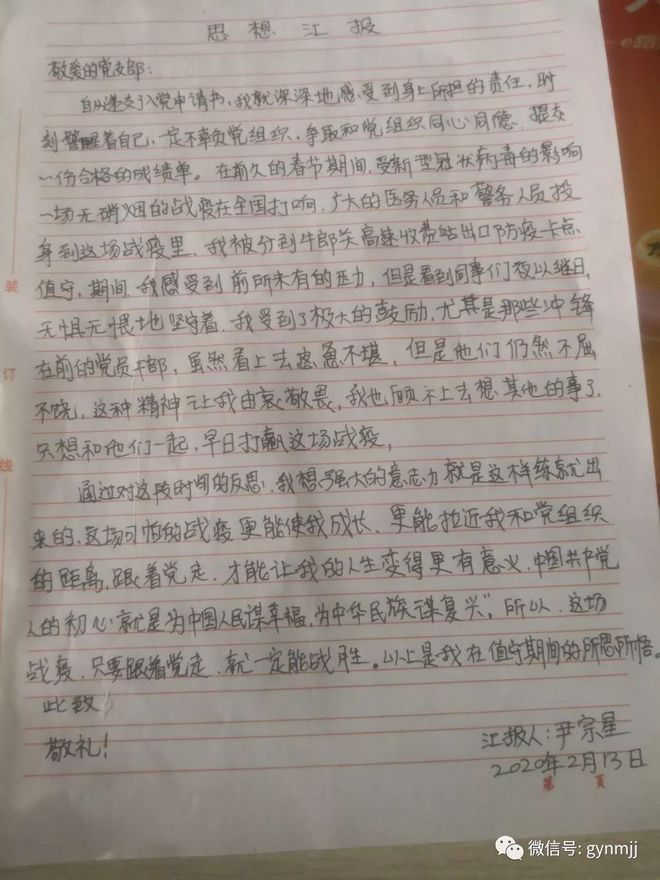 思想汇报
敬爱的党支部:
自从递交了入党申请书,我就深深地感受到身上所担的责任,时
刻警醒着自己,一定不辜负党组织,争取和党组织同心同德,提交
一份合格的成绩单。在前久的春节期间,受新型冠状病毒的影响
一场无硝烟的战疫在全国打响,广大的医务人员和警务人员投
身到这场战疫里,我被分到牛郎关高速收费站出口防疫卡点
值守,期间,我感受到前所未有的压力,但是看到同事们夜以继日,
无惧无畏地坚守着,我受到了极大的鼓励,尤其是那些冲锋
在前的党员干部,虽然看上去疲惫不堪,但是他们仍然不屈
不饶,这种精神让我由衷敬畏,我也顾不上去想其他的事了,
只想和他们一起,早日打赢这场战疫,
通过对这段时间的反思,我想强大的意志力就是这样练就出
来的,这场可怕的战疫更能使我成长,更能拉近我和党组织
的距离,跟着党走,才能让我的人生变得更有意义,中国共产党
人的初心就是为中国人民谋幸福,为中华民族谋复兴”,所以,这场
战疫,只要跟着党走,就一定能战胜。以上是我在值守期间的所思所悟。
此致
敬礼!
汇报人:尹宗星
2020年2月13日
第 页
装
订
线
e路
微信号: gynmjj